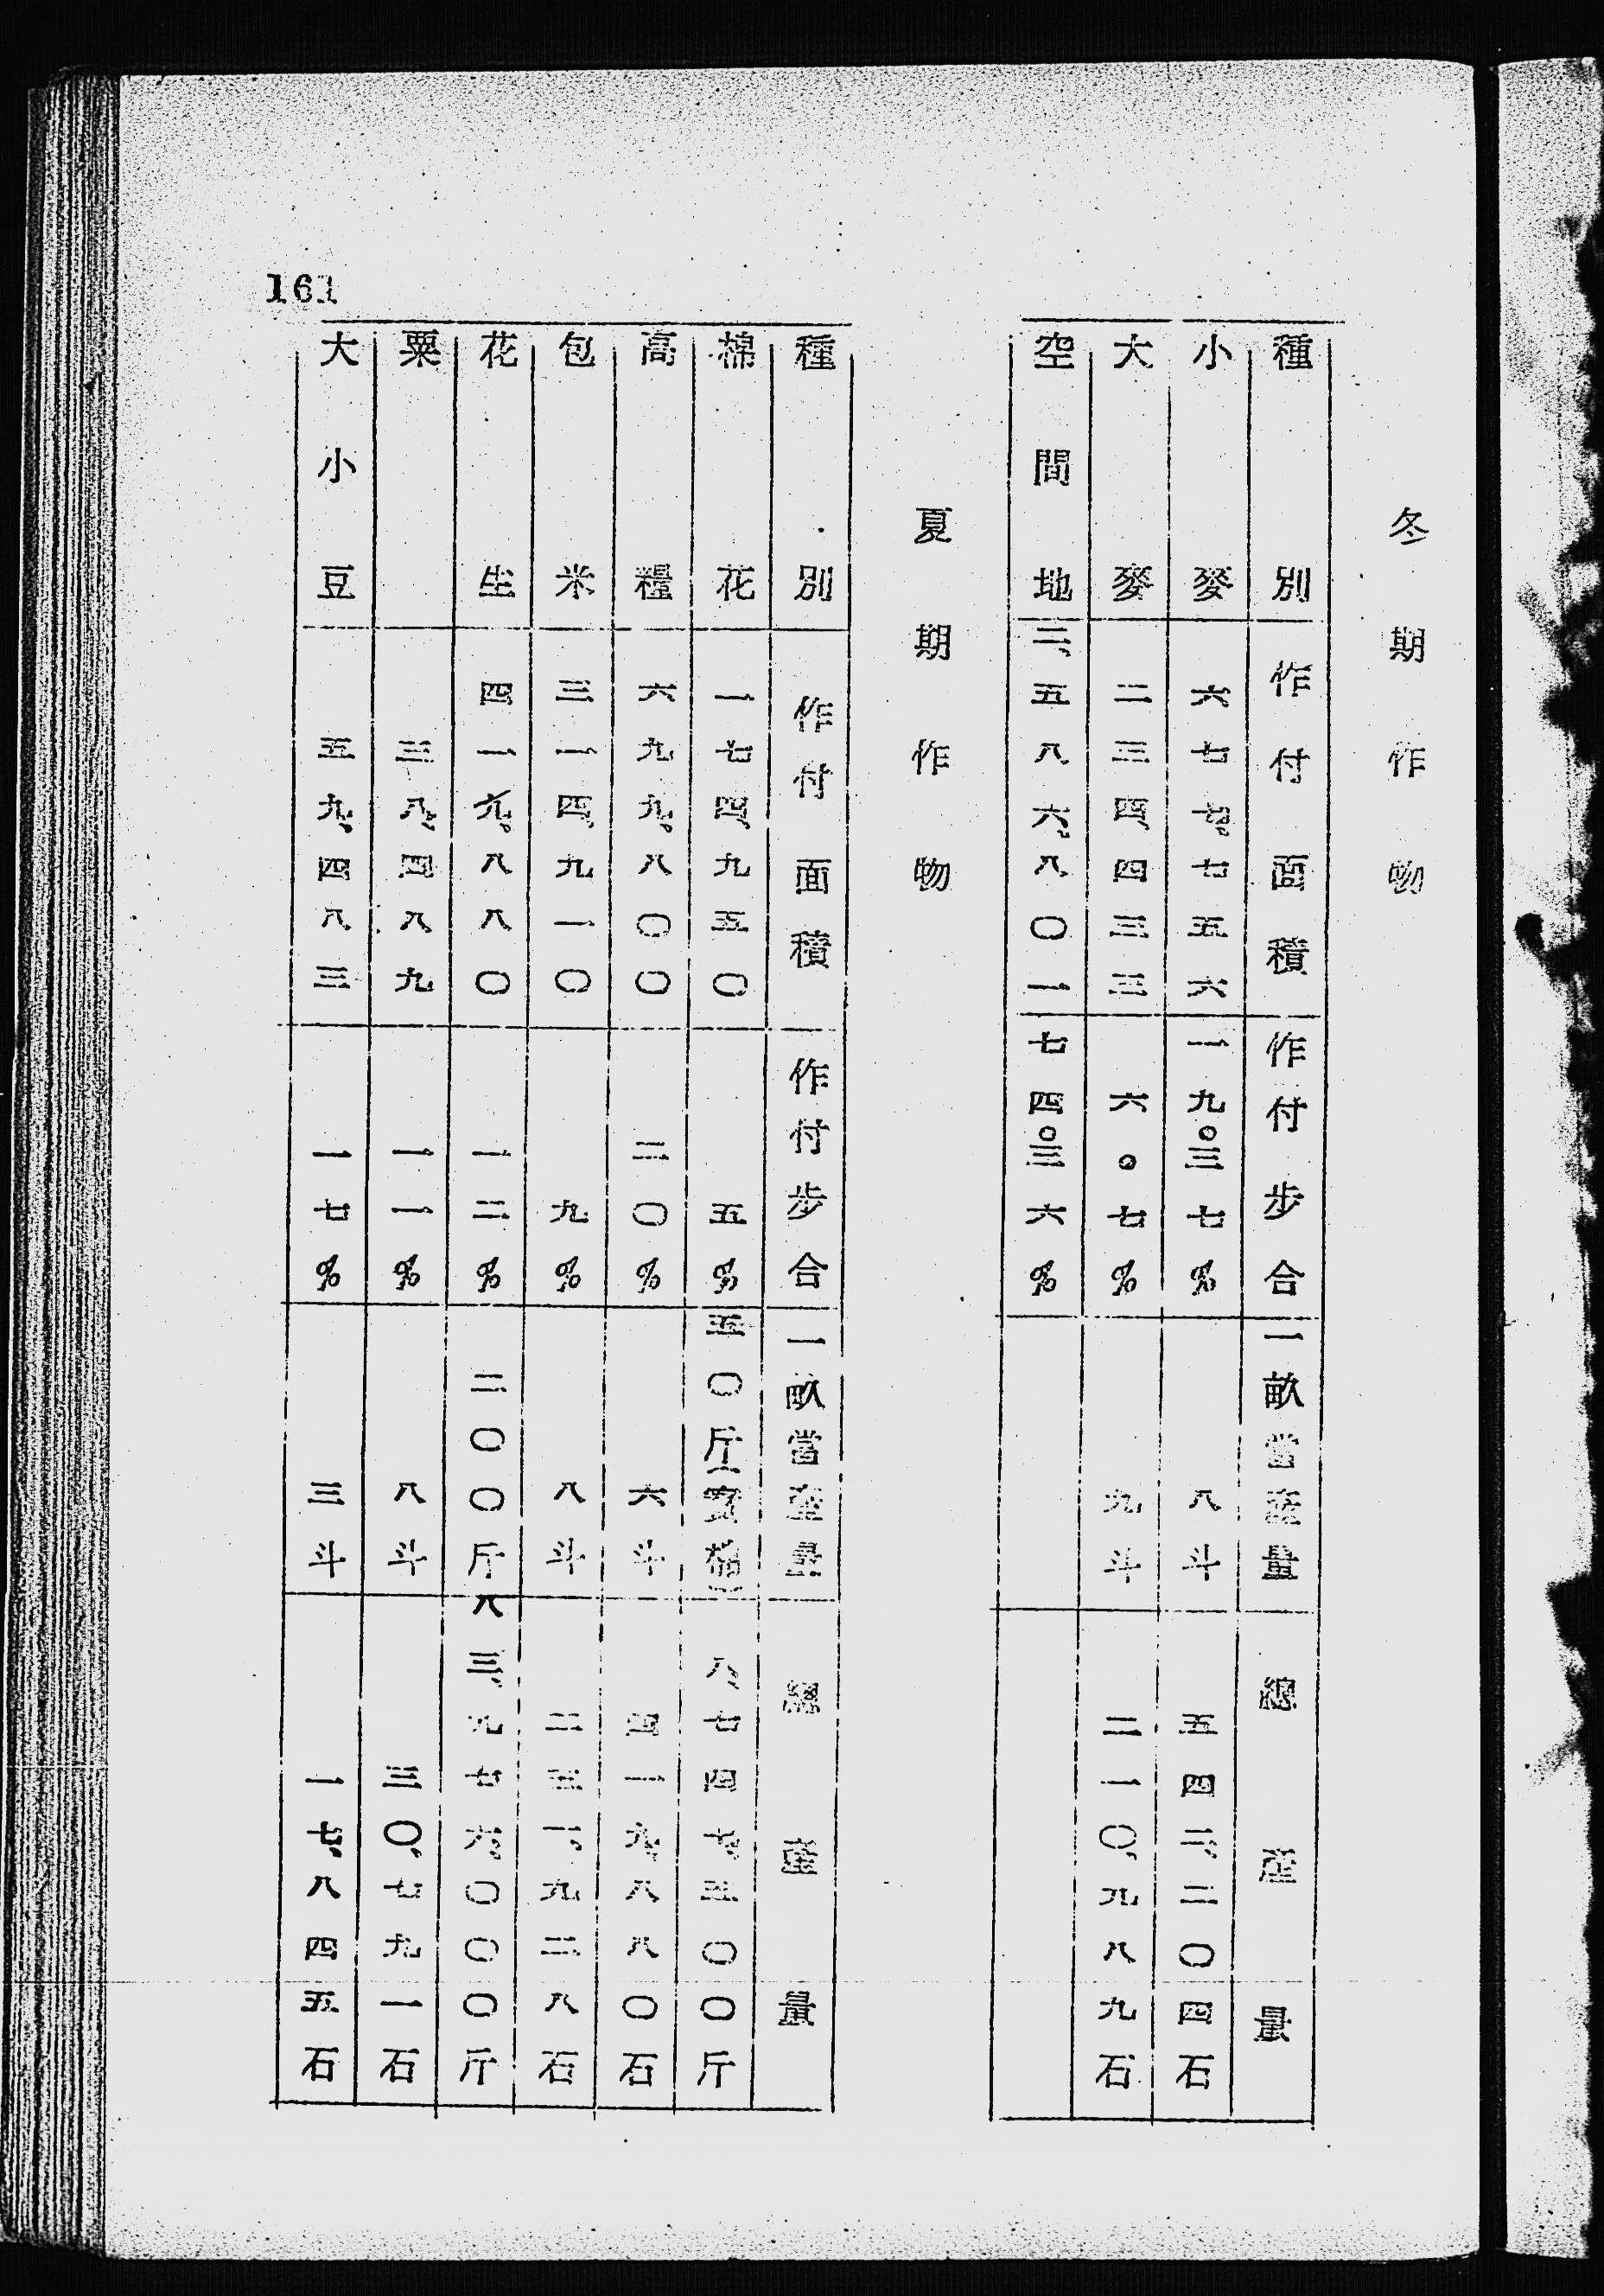 冬期作物
種別 作付面積 作付步合 一畝當產量 總產量
小麥 六七七、七五六 一九。三七% 八斗 五四二、二〇四石
大麥 二三四、四三三 六。七% 九斗 二一〇、九八九石
空間地 二、五八六、八〇一 七四。三六%
夏期作物
種別 作付面積 作付步合 一畝當產量 總產量
棉花 一七四、九五〇 五% 五〇斤(實棉) 八、七四七、五〇〇斤
高糧 六九九、八〇〇 二〇% 六斗 四一九、八八〇石
包米 三一四、九一〇 九% 八斗 二五一、九二八石
花生 四一九、八八〇 一二% 二〇〇斤 八三、九七六、〇〇〇斤
粟 三八、四八九 一一% 八斗 三〇、七九一石
大小豆 五九、四八三 一七% 三斗 一七、八四五石
161